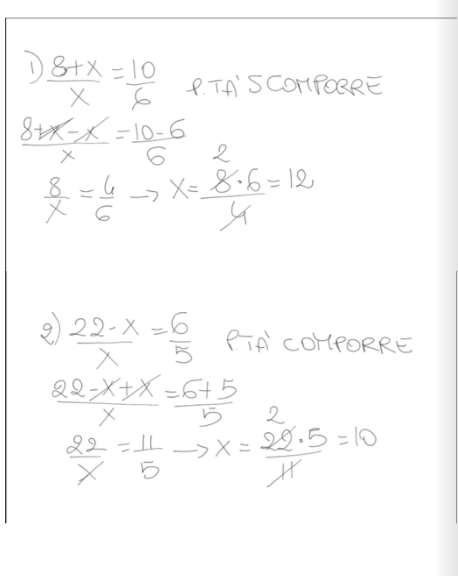 1) 8+x/x = 10/6 P.TA' SCOMPORRE
8+x-x/x = 10-6/6
8/x = 4/6 → x = 8·6/4 = 12
2
2) 22-x/x = 6/5 P.TA' COMPORRE
22-x+x/x = 6+5/5
22/x = 11/5 → x = 22·5/11 = 10
2